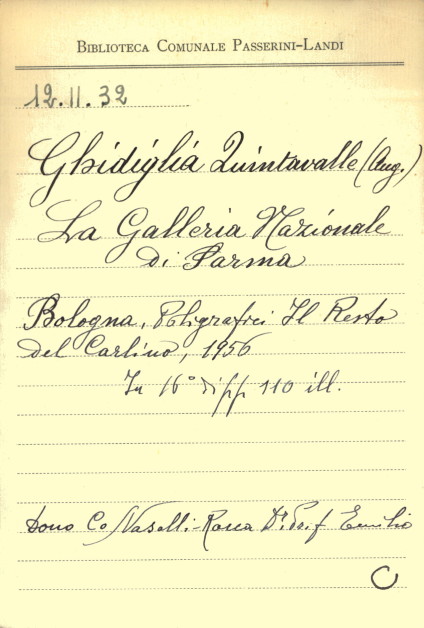 BIBLIOTECA COMUNALE PASSERINI-LANDI
12.11.32
Ghidiglia Quintavalle (Aug.)
La Galleria Nazionale
di Parma
Bologna, Poligrafici Il Resto
del Carlino, 1956
In 16° di pp 110 ill.
Dono Co Nasalli-Rocca Dr. Prof Emilio
C